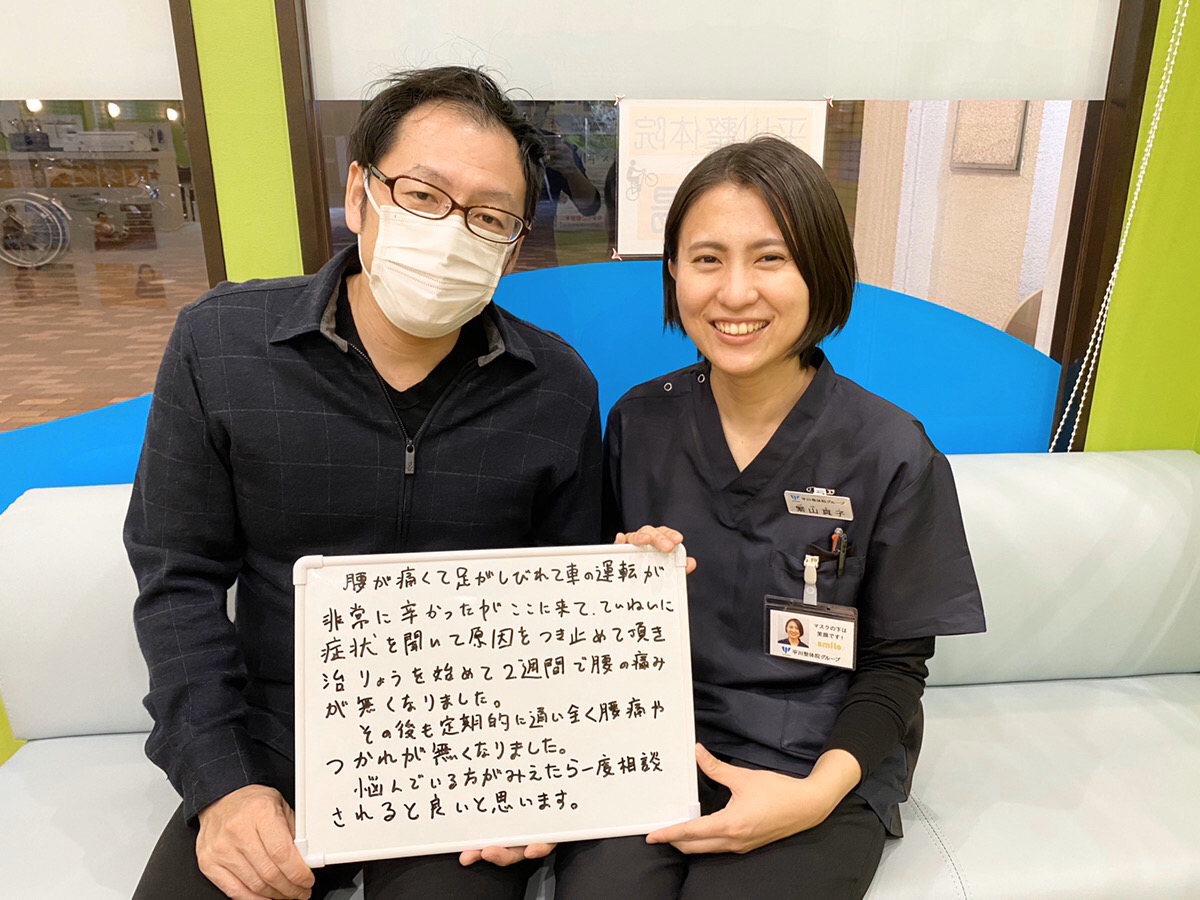 平川整体院
腰が痛くて足がしびれて車の運転が
非常に辛かったがここに来て、ていねいに
症状を聞いて原因をつき止めて頂き
治りょうを始めて2週間で腰の痛み
が無くなりました。
その後も定期的に通い全く腰痛や
つかれが無くなりました。
悩んでいる方がみえたら一度相談
されると良いと思います。
平川整体院グループ
山良子
マスクの下は
笑顔です!
smile
平川整体院グループ